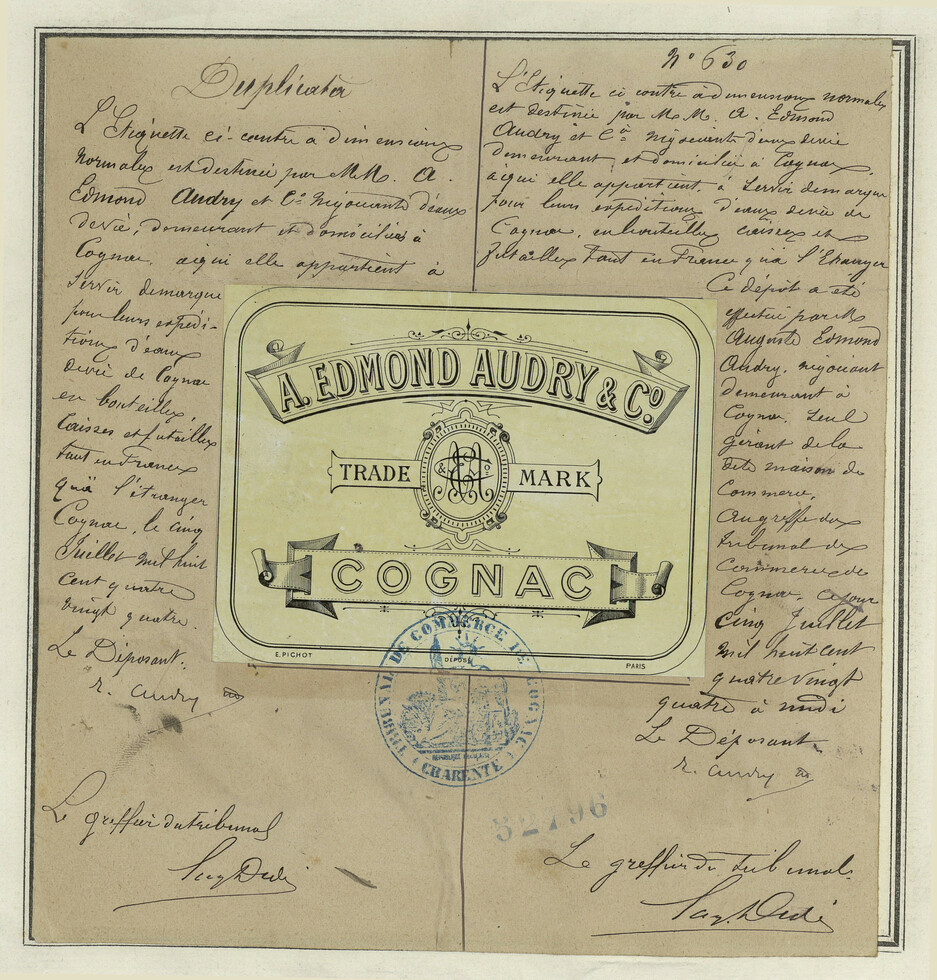 Duplicata
L'Étiquette ci-contre à dimensions
normales est destinée par M.M. A.
Edmond Audry et Cie Négociants d'eaux
devie, demeurant et domiciliés à
Cognac, aiqui elle appartient à
servir demarque
pour leurs expédi-
tions d'eaux
devie de Cognac
en bouteilles,
Caisses et futailles
tant en France
qu'à l'étranger
Cognac, le cinq
Juillet mil huit
cent quatre
vingt quatre.
Le Déposant.
E. Audry
Le greffier du tribunal
No 630
L'Étiquette ci contre à dimensions normales
est destinée par M.M. A. Edmond
Audry et Cie Négociants d'eaux devie
demeurant et domiciliés à Cognac,
aiqui elle appartient, à servir demarque
pour leurs expéditions d'eaux devie de
Cognac, en bouteilles caisses et
futailles tant en France qu'à l'Etranger
Ce dépôt a été
effectué par M.
Auguste Edmond
Audry, négociant
demeurant à
Cognac, seul
gérant de la
dite maison de
Commerce,
au greffe du
tribunal de
Commerce de
Cognac, ce jour
cinq Juillet
mil huit cent
quatre vingt
quatre à midi
Le Déposant
E. Audry
Le greffier du tribunal.
A. EDMOND AUDRY & Co.
TRADE MARK
COGNAC
E. PICHOT DÉPOSÉ PARIS
TRIBUNAL DE COMMERCE DE COGNAC
RÉPUBLIQUE FRANÇAISE
(CHARENTE)
52796